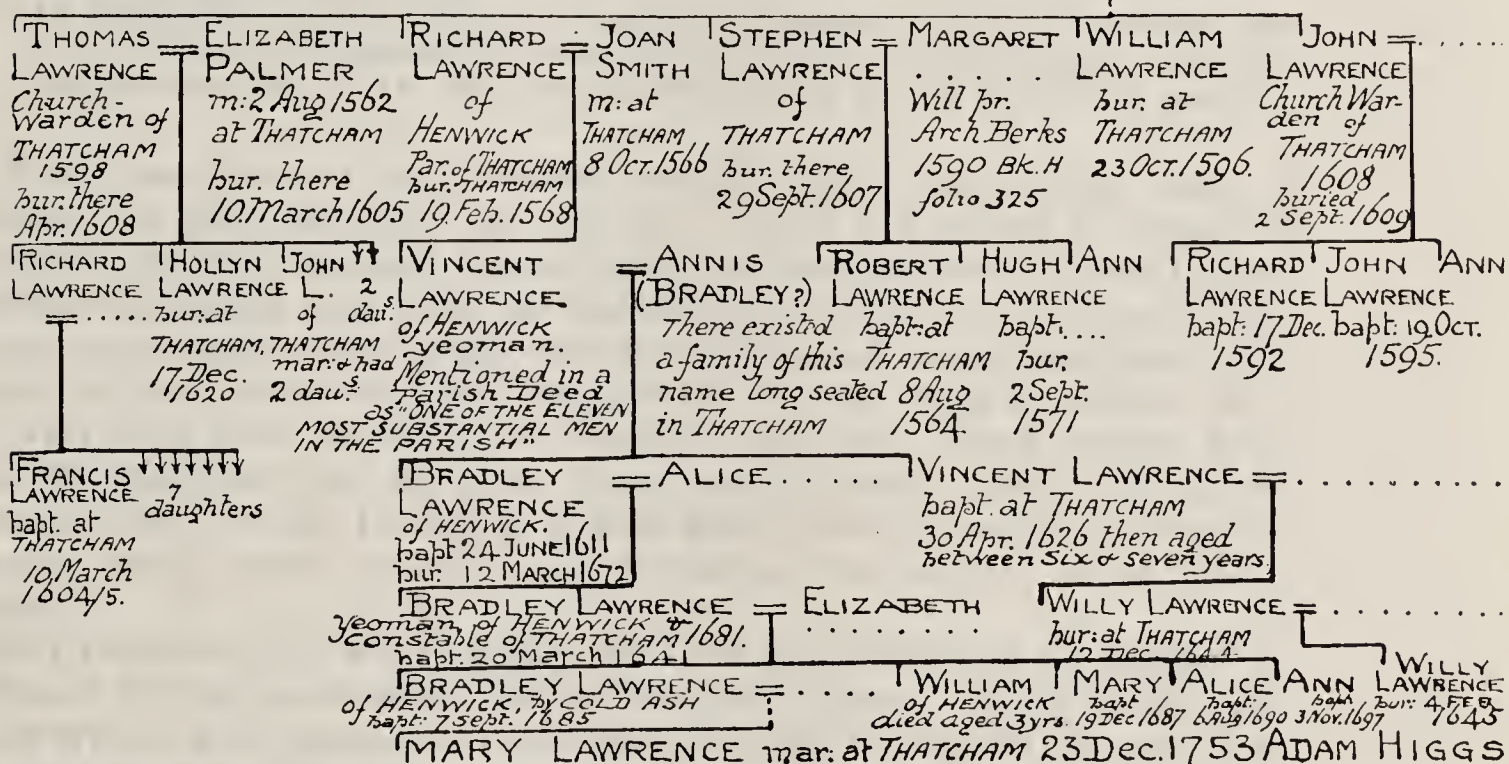 THOMAS
LAWRENCE
Church-
Warden of
THATCHAM
1598
bur. there
Apr. 1608
=
ELIZABETH
PALMER
m: 2 Aug 1562
at THATCHAM
bur. there
10. March 1605
RICHARD
LAWRENCE
of
HENWICK
Par. of THATCHAM
bur. THATCHAM
19. Feb. 1568
=
JOAN
SMITH
m: at
THATCHAM
8 Oct. 1566
STEPHEN
LAWRENCE
of
THATCHAM
bur. there
29 Sept. 1607
=
MARGARET
. . . . .
Will pr.
Arch Berks
1590 Bk. H
folio 325
WILLIAM
LAWRENCE
bur. at
THATCHAM
23 Oct. 1596.
JOHN = . . . . .
LAWRENCE
Church War-
den of
THATCHAM
1608
buried
2 Sept. 1609
RICHARD
LAWRENCE
= . . . . .
HOLLYN
LAWRENCE
bur: at
THATCHAM,
17 Dec.
1620
JOHN
L.
of
THATCHAM
mar: & had
2 daus.
2
daus.
VINCENT
LAWRENCE
of HENWICK
yeoman.
Mentioned in a
Parish Deed
as "ONE OF THE ELEVEN
MOST SUBSTANTIAL MEN
IN THE PARISH"
=
ANNIS
(BRADLEY?)
There existed
a family of this
name long seated
in THATCHAM
ROBERT
LAWRENCE
bapt: at
THATCHAM
8 Aug
1564.
HUGH
LAWRENCE
bapt: . . . .
bur.
2 Sept.
1571
ANN
RICHARD
LAWRENCE
bapt: 17 Dec.
1592
JOHN
LAWRENCE
bapt: 19, Oct.
1595.
ANN
FRANCIS
LAWRENCE
bapt. at
THATCHAM
10, March
1604/5.
7
daughters
BRADLEY = ALICE . . . . .
LAWRENCE
of HENWICK.
bapt 24 JUNE 1611
bur. 12 MARCH 1672
VINCENT LAWRENCE = . . . . . . . . .
bapt. at THATCHAM
30 Apr. 1626 then aged
between six & seven years
BRADLEY LAWRENCE = ELIZABETH
. . . . . . .
yeoman of HENWICK &
Constable of THATCHAM 1681.
bapt. 20 March 1641
WILLY LAWRENCE = . . . . . . . .
bur: at THATCHAM
12 Dec. 1644
BRADLEY LAWRENCE = . . . . .
of HENWICK, by COLD ASH
bapt: 7 Sept. 1685
WILLIAM
of HENWICK
died aged 3 yrs.
MARY
bapt
19 DEC 1687
ALICE
bapt:
6 Aug 1690
ANN
bapt
3 Nov. 1697
WILLY
LAWRENCE
bur: 4, FEB
1645
MARY LAWRENCE mar: at THATCHAM 23 Dec. 1753 ADAM HIGGS